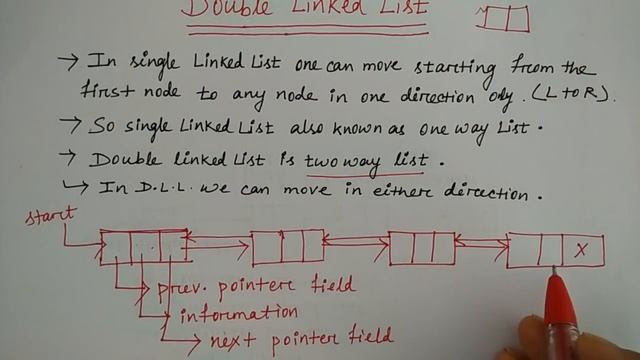 Double Linked List
→ In single Linked List one can move starting from the
first node to any node in one direction only. (L to R).
→ So single Linked List also known as one way List.
→ Double linked List is two way list.
↳ In D.L.L. we can move in either direction.
start
X
→ prev. pointer field
→ information
→ next pointer field